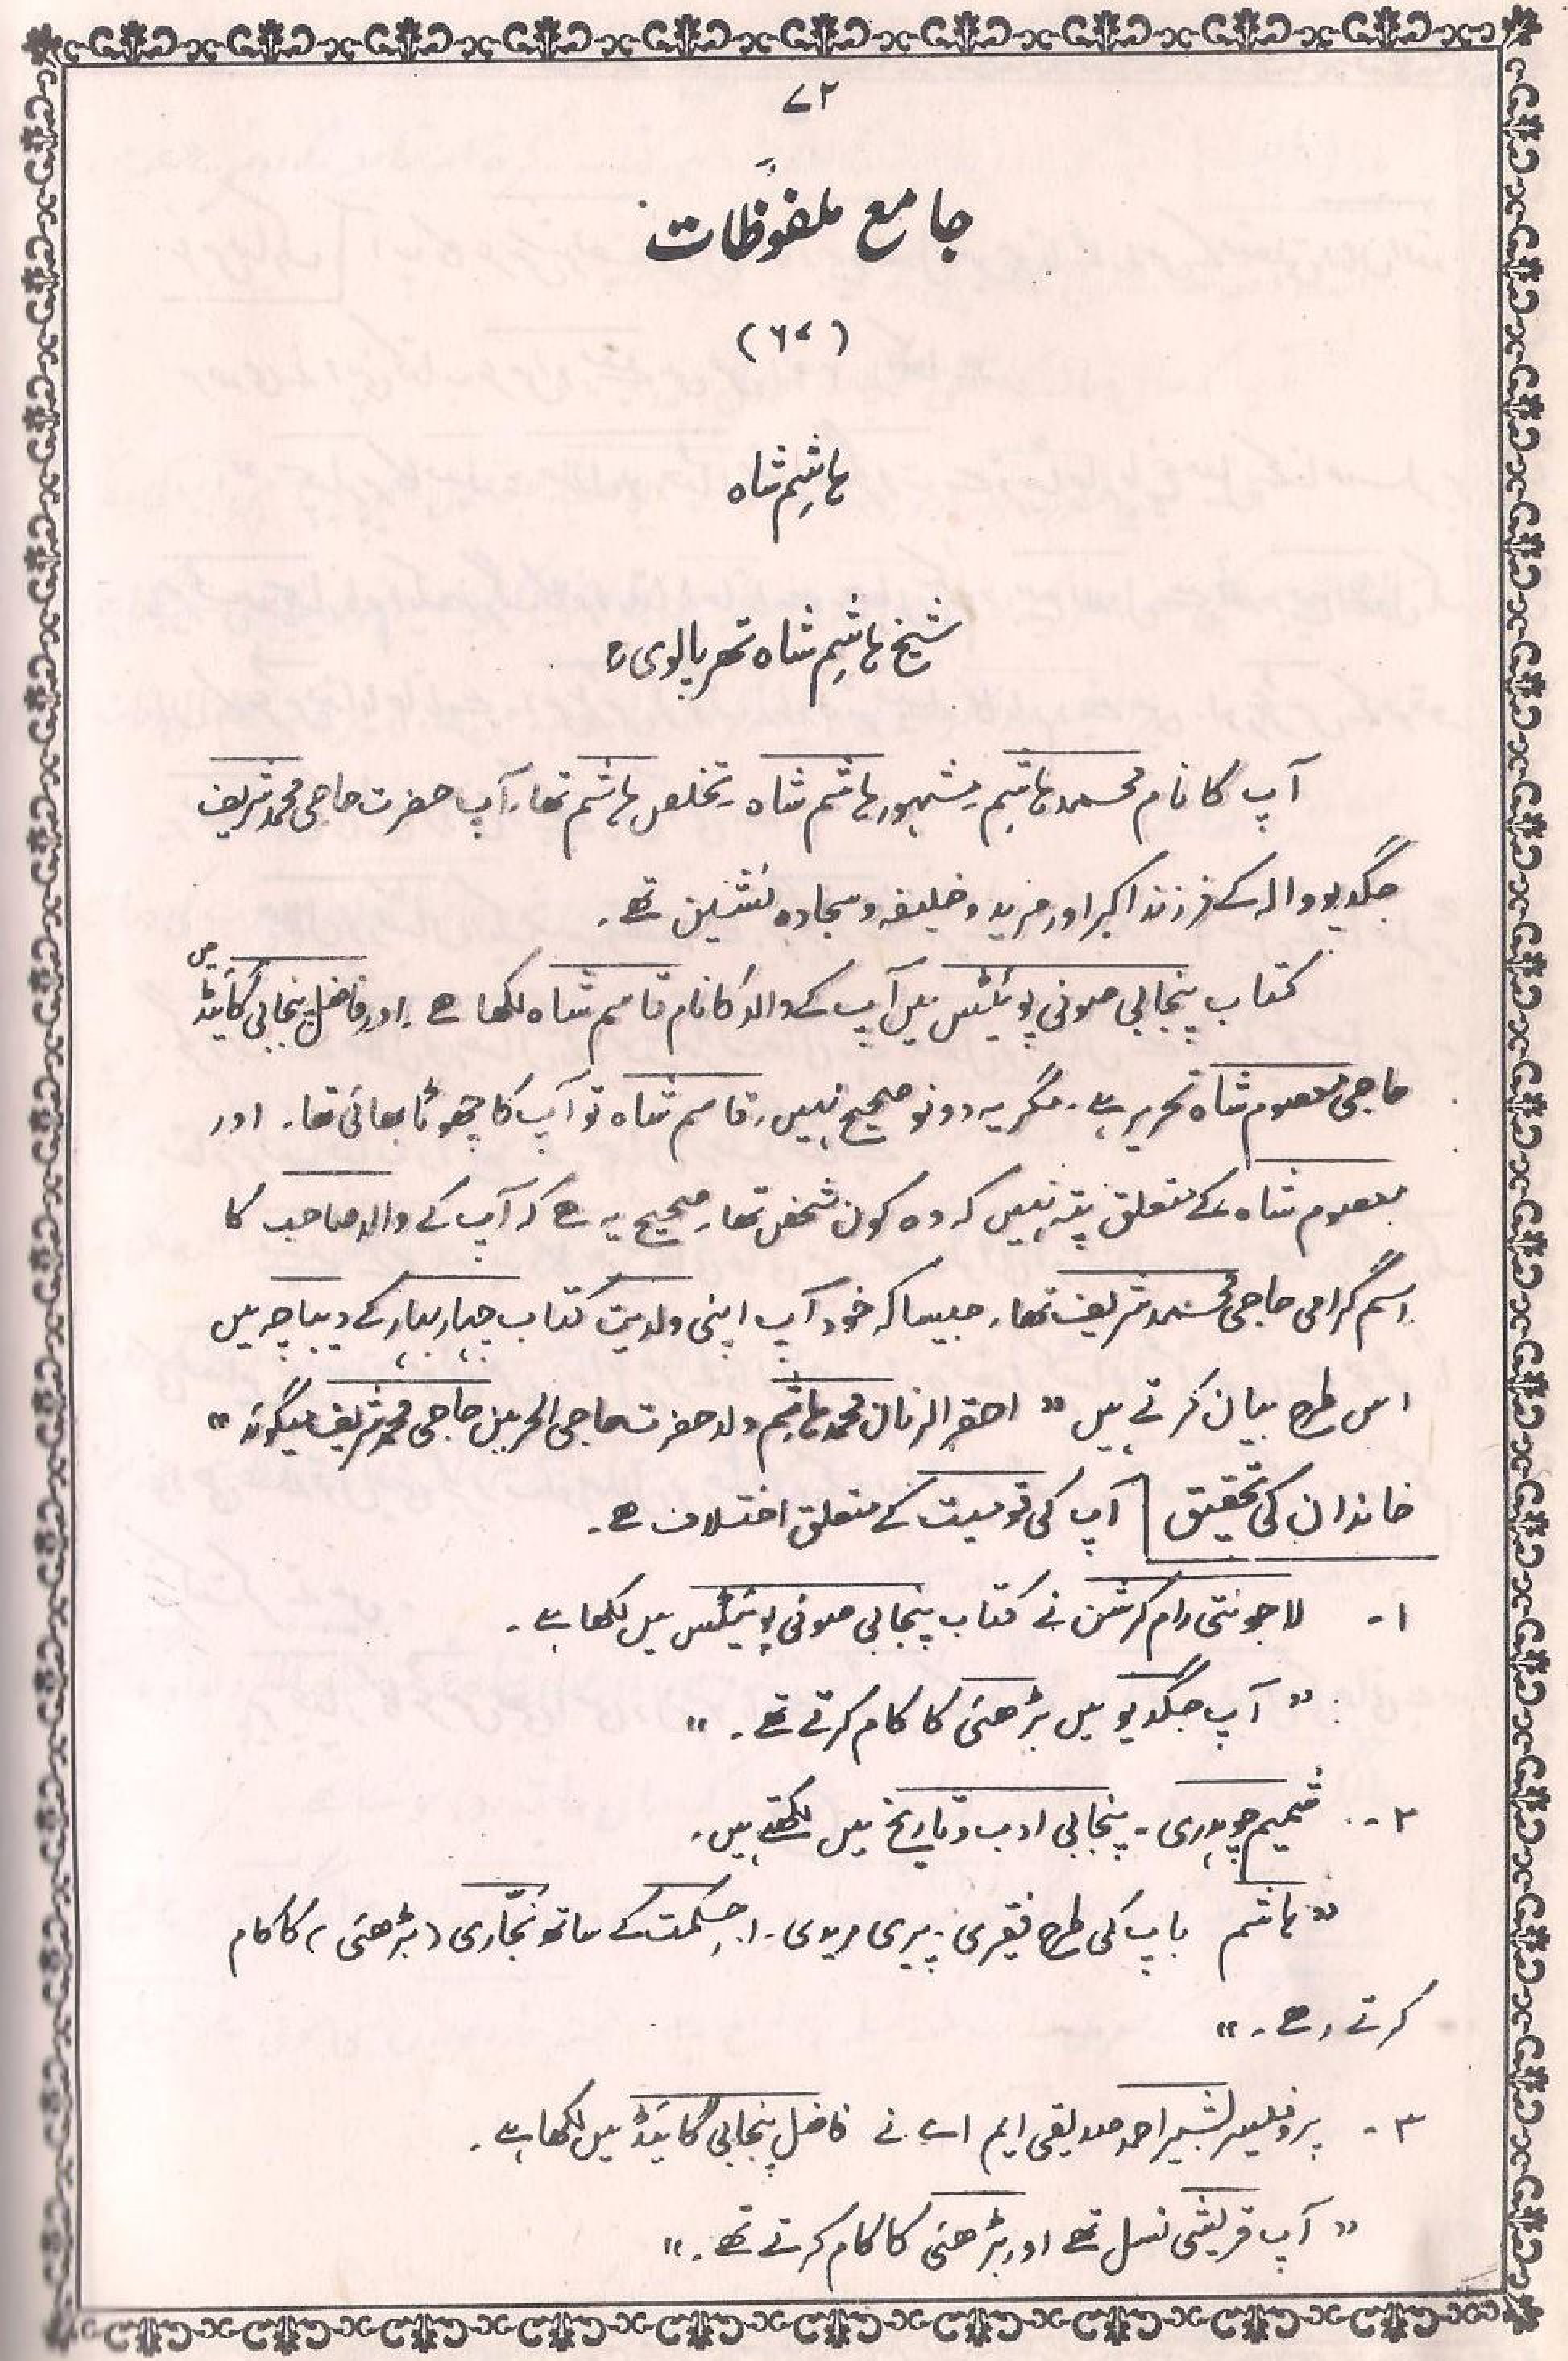 ۷۲
جامع ملفوظات
(۶۷)
ہاشم شاہ
شیخ ہاشِم شاہ تھرپالوی رح
آپ کا نام محمد ہاشم۔ مشہور ہاشم شاہ۔ تخلص ہاشم تھا۔ آپ حضرت حاجی محمد شریف
جگدیو والہ کے فرزند اکبر اور مرید و خلیفہ و سجادہ نشین تھے۔
کتاب پنجابی صوفی پوئیٹس میں آپ کے والد کا نام قاسم شاہ لکھا ہے۔ اور فاضل پنجابی گائیڈ میں
حاجی معصوم شاہ تحریر ہے۔ مگر یہ دونو صحیح نہیں۔ قاسم شاہ تو آپ کا چھوٹا بھائی تھا۔ اور
معصوم شاہ کے متعلق پتہ نہیں کہ وہ کون شخص تھا۔ صحیح یہ ہے کہ آپ کے والد صاحب کا
اسم گرامی حاجی محمد شریف تھا۔ جیسا کہ خود آپ اپنی ولدیت کتاب چہار بہار کے دیباچہ میں
اس طرح بیان کرتے ہیں " احقر الزمان محمد ہاشم ولد حضرت حاجی الحرمین حاجی محمد شریف میگوئد "
خاندان کی تحقیق | آپ کی قومیت کے متعلق اختلاف ہے۔
۱- لاجونتی رام کرشن نے کتاب پنجابی صوفی پوئیٹس میں لکھا ہے۔
" آپ جگدیو میں بڑھئی کا کام کرتے تھے۔ "
۲- شمیم چوہدری۔ پنجابی ادب و تاریخ میں لکھتے ہیں۔
" ہاشم باپ کی طرح فقیری۔ پیری مریدی۔ اور حکمت کے ساتھ نجّاری (بڑھئی) کا کام
کرتے رہے۔ "
۳- پروفیسر بشیر احمد صدیقی ایم اے نے فاضل پنجابی گائیڈ میں لکھا ہے۔
" آپ قریشی نسل تھے اور بڑھئی کا کام کرتے تھے۔ "